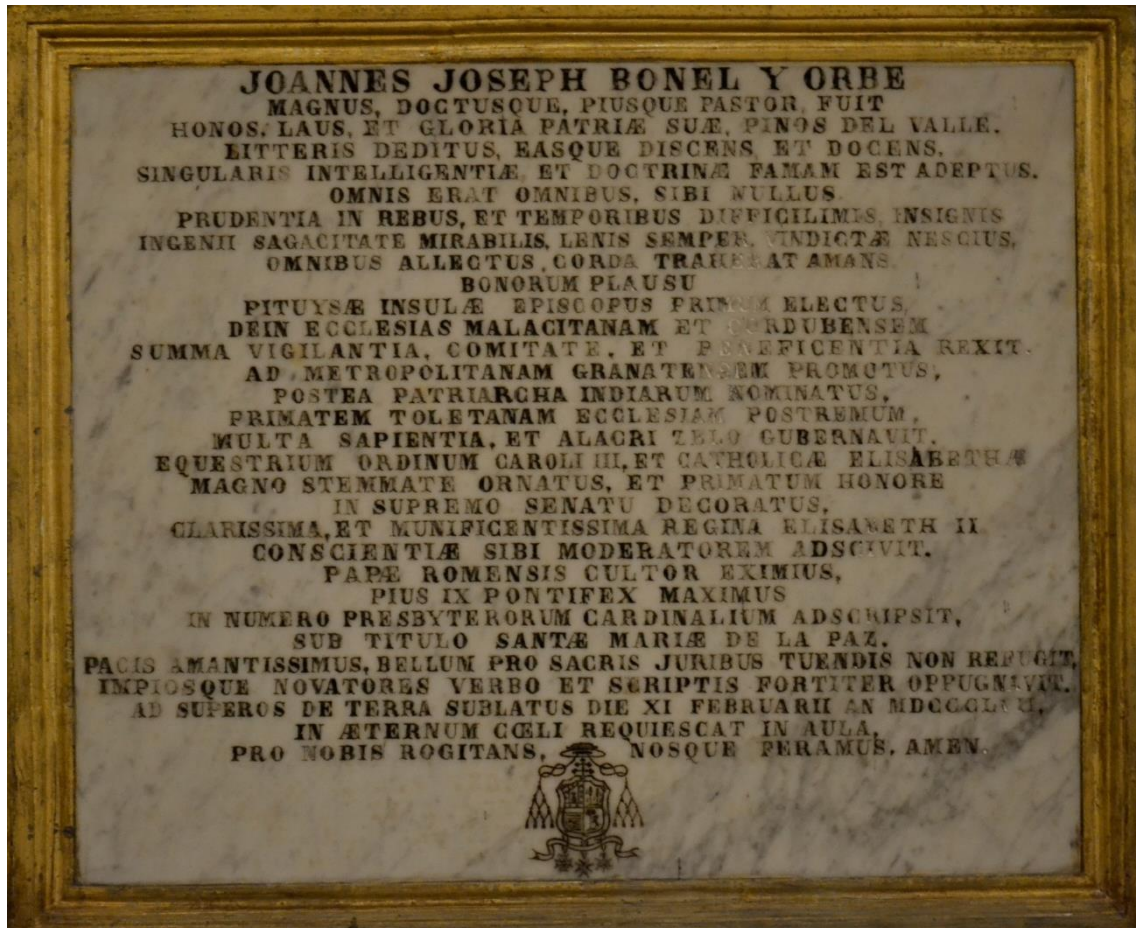 JOANNES JOSEPH BONEL Y ORBE
MAGNUS, DOCTUSQUE, PIUSQUE PASTOR, FUIT
HONOS, LAUS, ET GLORIA PATRIÆ SUÆ, PINOS DEL VALLE.
LITTERIS DEDITUS, EASQUE DISCENS, ET DOCENS,
SINGULARIS INTELLIGENTIÆ, ET DOCTRINÆ FAMAM EST ADEPTUS.
OMNIS ERAT OMNIBUS, SIBI NULLUS.
PRUDENTIA IN REBUS, ET TEMPORIBUS DIFFICILIMIS, INSIGNIS
INGENII SAGACITATE MIRABILIS, LENIS SEMPER, VINDICTÆ NESCIUS,
OMNIBUS ALLECTUS, CORDA TRAHEBAT AMANS.
BONORUM PLAUSU
PITUYSÆ INSULÆ EPISCOPUS PRIMUM ELECTUS,
DEIN ECCLESIAS MALACITANAM ET CORDUBENSEM
SUMMA VIGILANTIA, COMITATE, ET BENEFICENTIA REXIT.
AD METROPOLITANAM GRANATENSEM PROMOTUS,
POSTEA PATRIARCHA INDIARUM NOMINATUS,
PRIMATEM TOLETANAM ECCLESIAM POSTREMUM,
MULTA SAPIENTIA, ET ALACRI ZELO GUBERNAVIT.
EQUESTRIUM ORDINUM CAROLI III, ET CATHOLICÆ ELISABETHÆ
MAGNO STEMMATE ORNATUS, ET PRIMATUM HONORE
IN SUPREMO SENATU DECORATUS,
CLARISSIMA, ET MUNIFICENTISSIMA REGINA ELISABETH II
CONSCIENTIÆ SIBI MODERATOREM ADSCIVIT.
PAPÆ ROMENSIS CULTOR EXIMIUS,
PIUS IX PONTIFEX MAXIMUS
IN NUMERO PRESBYTERORUM CARDINALIUM ADSCRIPSIT,
SUB TITULO SANTÆ MARIÆ DE LA PAZ.
PACIS AMANTISSIMUS, BELLUM PRO SACRIS JURIBUS TUENDIS NON REFUGIT,
IMPIOSQUE NOVATORES VERBO ET SCRIPTIS FORTITER OPPUGNAVIT.
AD SUPEROS DE TERRA SUBLATUS DIE XI FEBRUARII AN
IN ÆTERNUM CŒLI REQUIESCAT IN AULA,
PRO NOBIS ROGITANS, NOSQUE FERAMUS. AMEN.